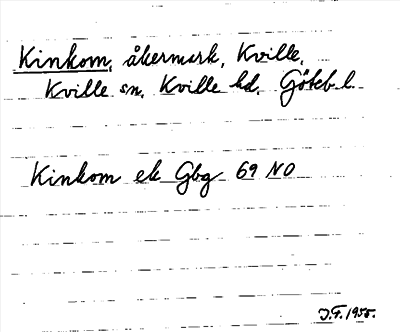 Kinkom, åkermark, Kville,
Kville sn, Kville hd, Göteb. l.
Kinkom ek Gbg 69 NO
J.F. 1955.